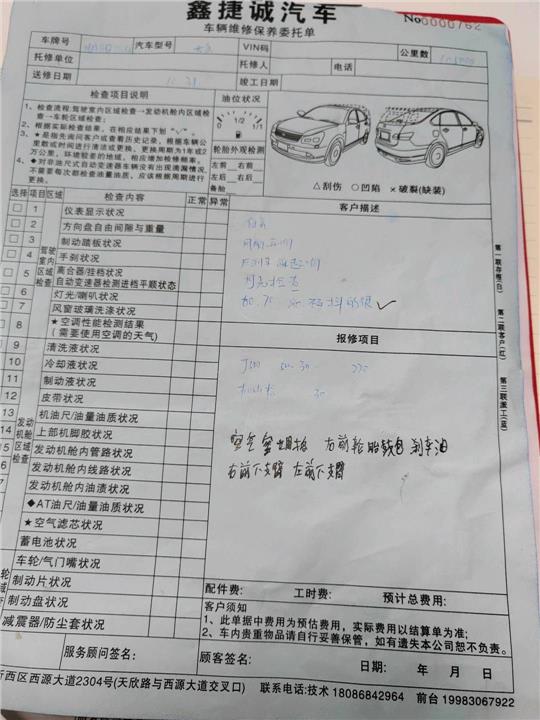 鑫捷诚汽车
车辆维修保养委托单
No0000762
车牌号 汽车型号 VIN码 公里数
托修单位 托修人 电话
送修日期 11.21 竣工日期
检查项目说明
油位状况
1、检查流程:驾驶室内区域检查→发动机舱内区域检
查→车轮区域检查;
2、根据实际检查结果,在相应结果下划“√”。
3、★是指先询问客户或查看历史记录,根据车辆公
里数或时间进行清洁或更换,更换周期为1年或2
万公里,环境较差的地域,相应增加检修频率。
4、◆对非油尺式自动变速器车辆没有出现滴漏情况,
不需要每次都检查油量油质,应该根据周期进行
更换。
0 1/2 1/1
轮胎外观检测
左前 右前
左后 右后
备胎
△刮伤 ○凹陷 ×破裂(缺装)
选择 项目区域 检查内容 正常 异常
客户描述
1 仪表显示状况
2 方向盘自由间隙与重量
3 制动踏板状况
4 手刹状况
5 离合器/挂档状况
自动变速器检测进档平顺状态
6 灯光/喇叭状况
7 风窗玻璃洗涤状况
8 ★空调性能检测结果
(需要使用空调的天气)
驾驶室内区域检查
报修项目
9 清洗液状况
10 冷却液状况
11 制动液状况
12 皮带状况
13 机油尺/油量油质状况
14 上部机脚胶状况
15 发动机舱内管路状况
发动机舱内线路状况
发动机舱内油渍状况
◆AT油尺/油量油质状况
★空气滤芯状况
蓄电池状况
发动机舱区域检查
空气 右前轮胎钱包 刹车油
右前下支臂 左前下支臂
车轮/气门嘴状况
制动片状况
制动盘状况
减震器/防尘套状况
配件费: 工时费: 预计总费用:
客户须知
1、此单据中费用为预估费用,实际费用以结算单为准;
2、车内贵重物品请自行妥善保管,如有遗失本公司恕不负责。
服务顾问签名: 顾客签名: 日期: 年 月 日
新西区西源大道2304号(天欣路与西源大道交叉口) 联系电话:技术 18086842964 前台 19983067922
第一联存根(白)
第二联客户(红)
第三联派工(蓝)